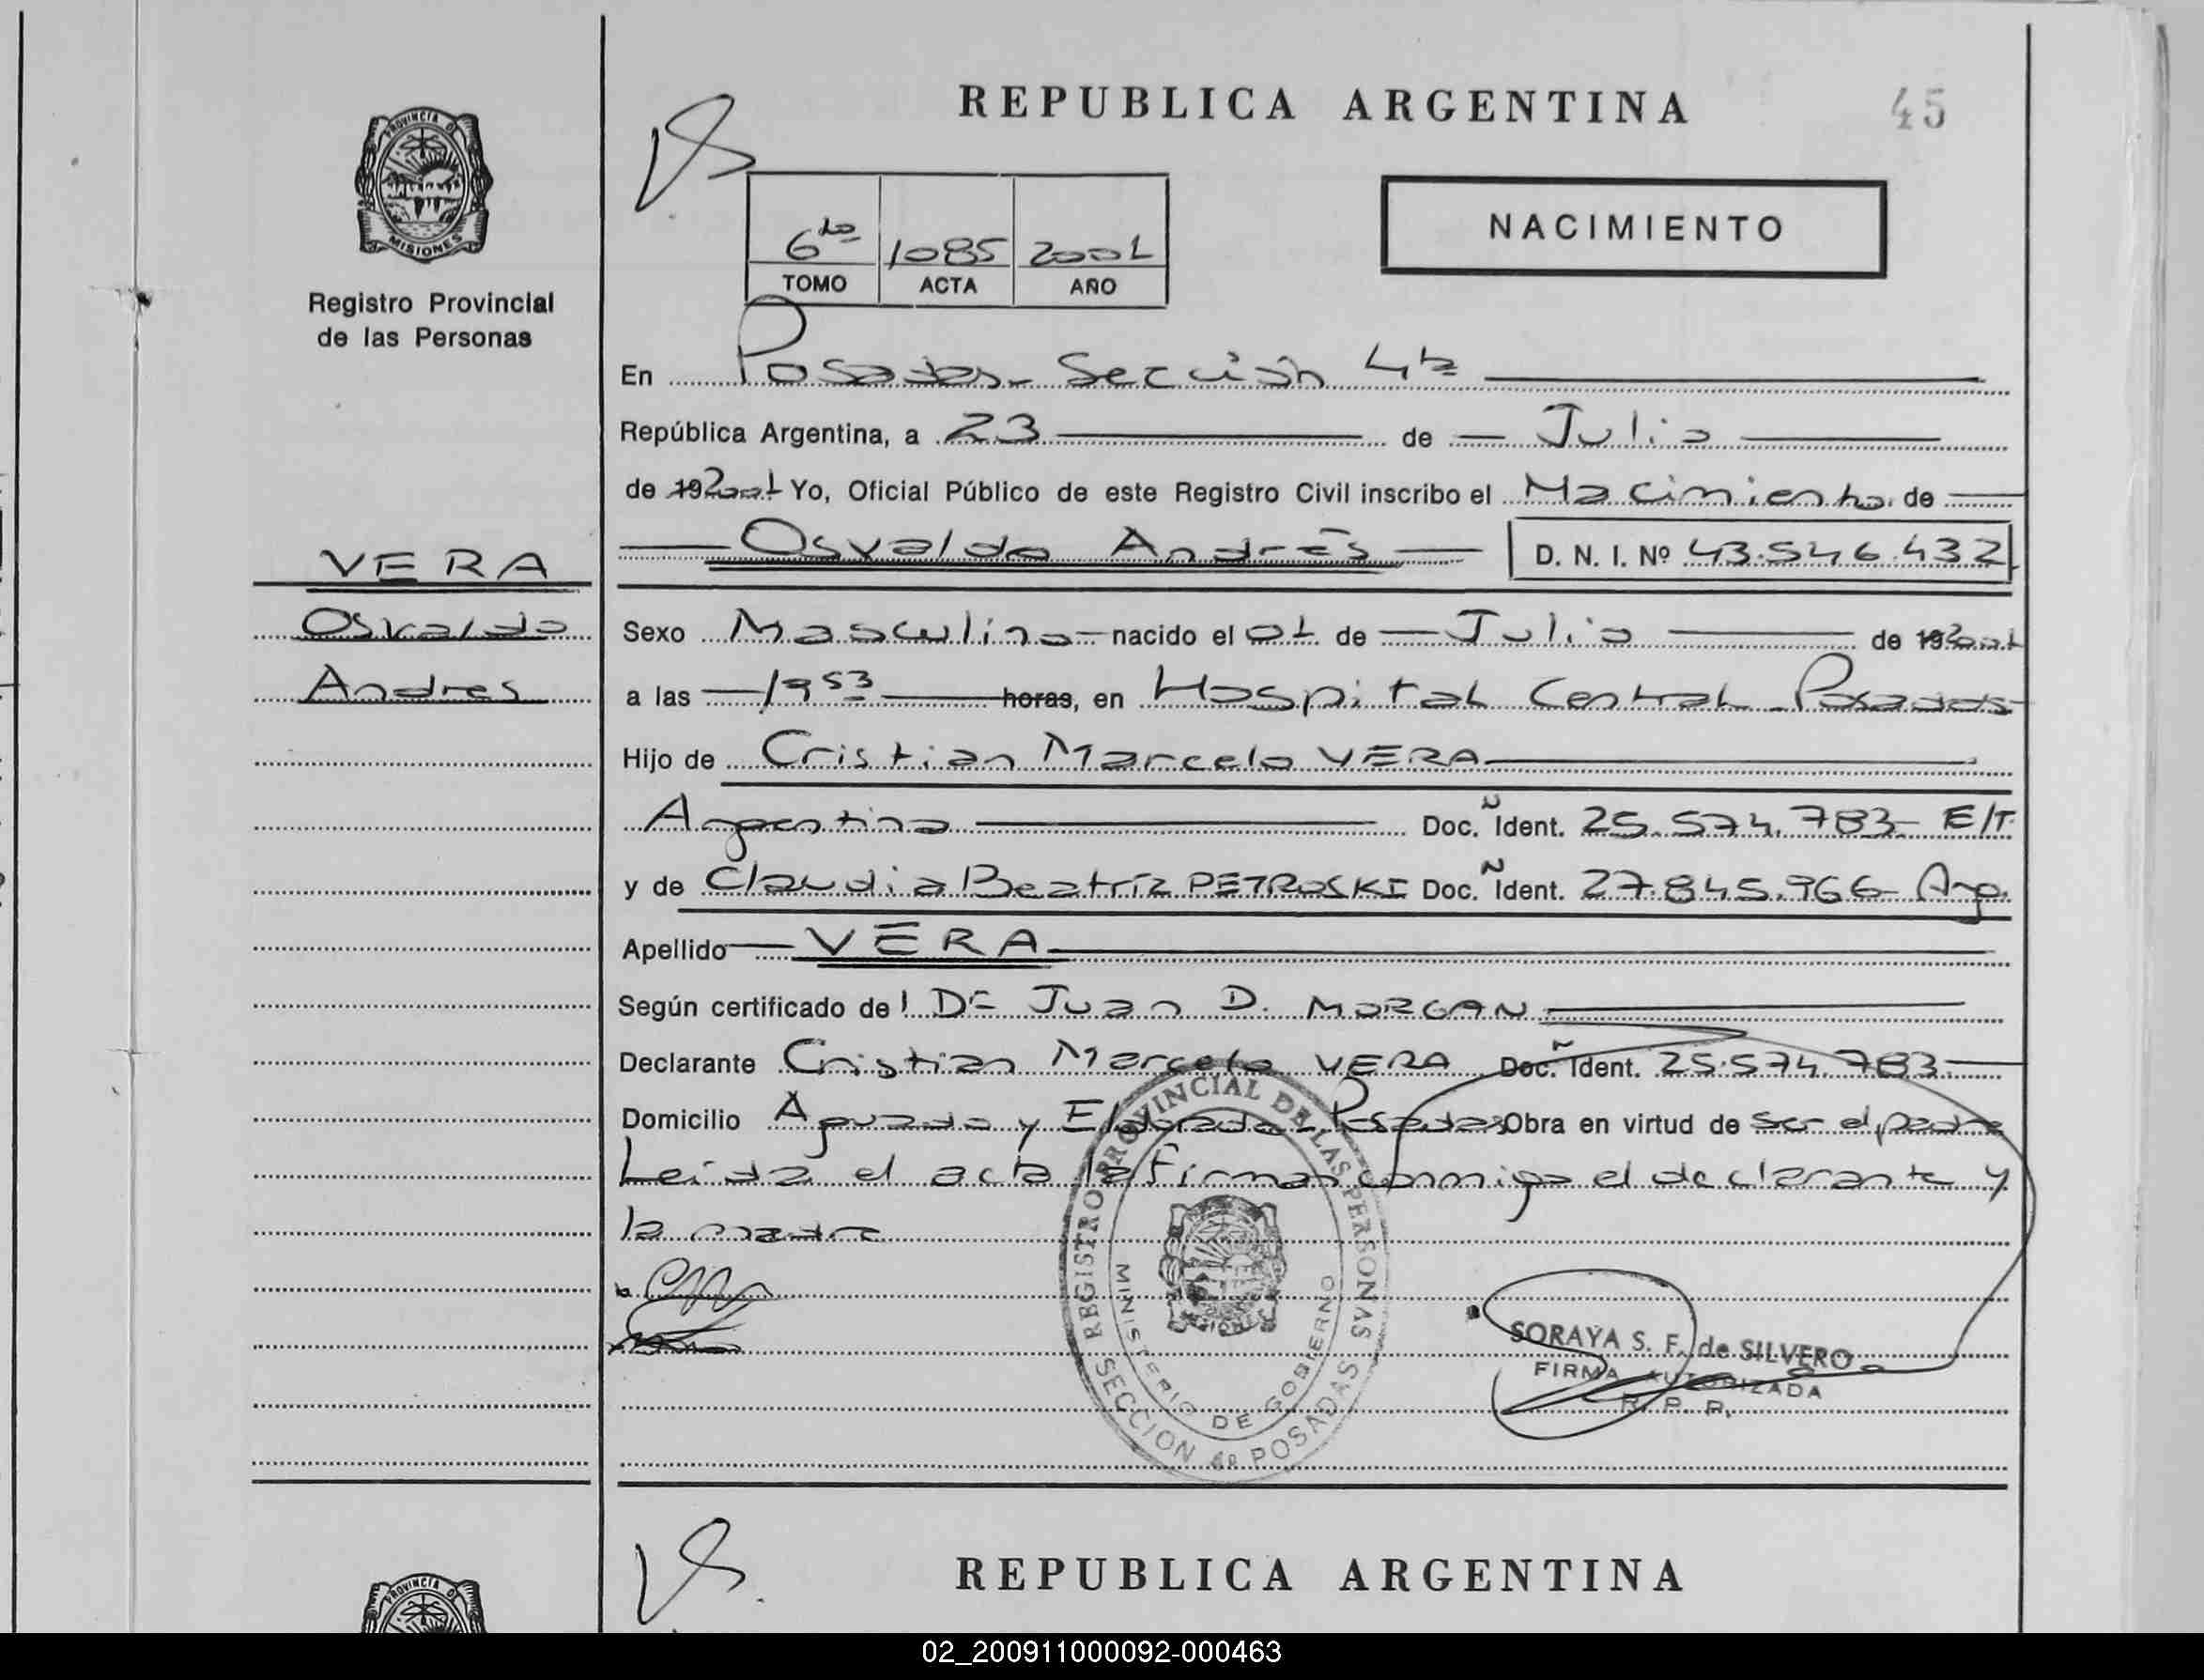 REPUBLICA ARGENTINA
45
PROVINCIA DE
MISIONES
Registro Provincial
de las Personas
6to 1085 2001
TOMO ACTA AÑO
NACIMIENTO
En Posadas - Sección 4ta
República Argentina, a 23 de Julio
de 192001 Yo, Oficial Público de este Registro Civil inscribo el Nacimiento de
Osvaldo Andrés D. N. I. Nº 43.546.432
VERA
Osvaldo
Andres
Sexo Masculino nacido el 01 de Julio de 192001
a las 1953 horas, en Hospital Central - Posadas
Hijo de Cristian Marcelo VERA
Argentino Doc. Ñ Ident. 25.574.783 - E/T.
y de Claudia Beatríz PETROSKI Doc. Ñ Ident. 27.845.966 - Arg.
Apellido VERA
Según certificado de l Dr Juan D. MORGAN
Declarante Cristian Marcelo VERA Doc. Ñ Ident. 25.574.783
Domicilio Aguado y Eldorado - Posadas Obra en virtud de ser el padre
Leida el acta la firman conmigo el declarante y
la madre
REGISTRO PROVINCIAL DE LAS PERSONAS
MINISTERIO DE GOBIERNO
SECCION 4a POSADAS
SORAYA S. F. de SILVERO
FIRMA AUTORIZADA
R. P. P.
REPUBLICA ARGENTINA
PROVINCIA DE
02_200911000092-000463